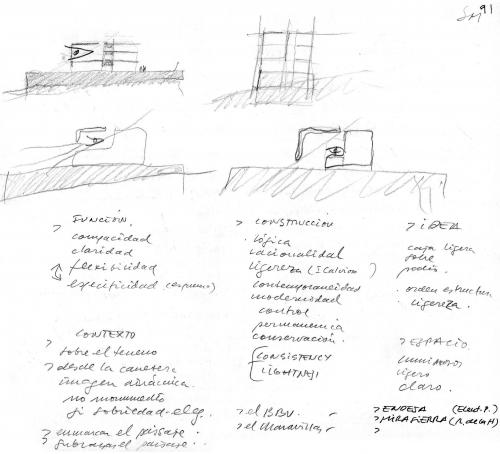 91
> FUNCIÓN.
compacidad
claridad
flexibilidad
especificidad
> CONSTRUCCIÓN
. lógica
racionalidad
ligereza (I Calvino)
contemporaneidad
modernidad
control
permanencia
conservación.
CONSISTENCY
LIGHTNE
> IDEA
caja ligera
sobre
podio
. orden estructura
. ligereza.
CONTEXTO
> sobre el terreno
> desde la carretera
imagen dinámica
no monumento
si sobriedad-eleg.
> enmarcar el paisaje.
> subrayar el paisaje..
> ESPACIO.
luminosos
ligero
claro.
> el BBV.
> el Maravillas
> ENDESA
> MIRASIERRA
>